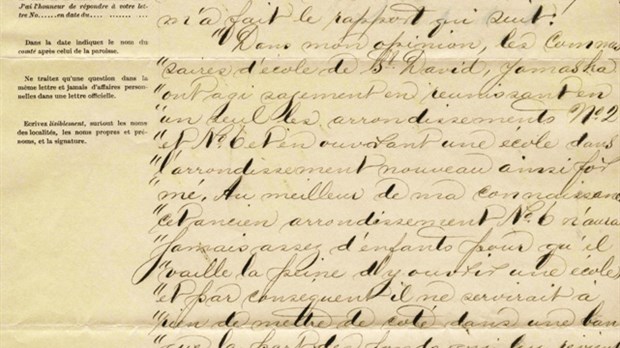 J'ai l'honneur de répondre à votre let-
tre No......en date du......
Dans la date indiquez le nom du
comté après celui de la paroisse.
Ne traitez qu'une question dans la
même lettre et jamais d'affaires person-
nelles dans une lettre officielle.
Ecrivez lisiblement, surtout les noms
des localités, les noms propres et pré-
noms, et la signature.
m'a fait le rapport qui suit:
"Dans mon opinion, les commis-
"saires d'école de St David, Yamaska
"ont agi sagement en réunissant en
"un seul les arrondissements No 2
"et No 6 et en ouvrant une école dans
"l'arrondissement nouveau ainsi for
"mé. Au meilleur de ma connaissance
"cet ancien arrondissement No 6 n'aura
"jamais assez d'enfants pour qu'il
"vaille la peine d'y ouvrir une école
"et par conséquent il ne servirait à
"rien de mettre de coté dans une ban
"que la part des fonds qui lui